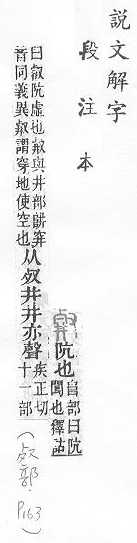 說文解字
段注本
阬也
𨸏部曰阬
閬也釋詁
曰𣦼阬虛也𣦼與井部阱穽
音同義異𣦼謂穿地使空也
从𣦻井井亦聲
疾正切
十一部
(𣦻部. P163)